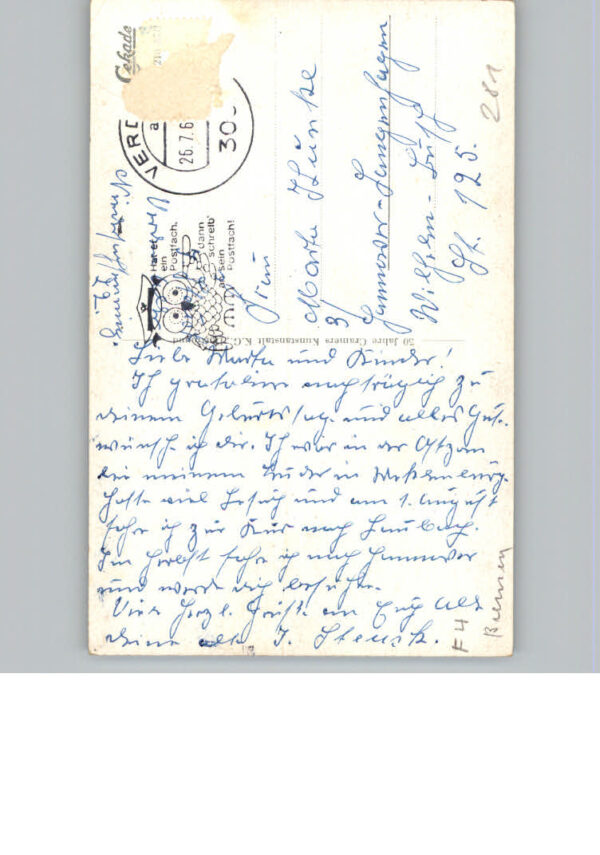 Cekade
VERD
a
26.7.6
309
Hat er
ein
Postfach,
dann
schreib'
an sein
Postfach!
50 Jahre Cramers Kunstanstalt K.G.
Frau
Marta
3
Hannover-Langenhagen
Wilhelm-Busch
Str. 125.
281
Liebe Marta und Kinder!
Ich gratuliere nachträglich zu
deinem Geburtstag und alles Gute
wünsche ich dir. Ich war in der Ostzone
bei meinem Bruder in Mecklenburg.
Hatte viel Besuch und am 1. August
fahre ich zur Kur nach Laubach.
Im Herbst fahre ich nach Hannover
und werde dich besuchen.
Viele herzl. Grüße an Euch alle
deine alte J.
F4
Bremen